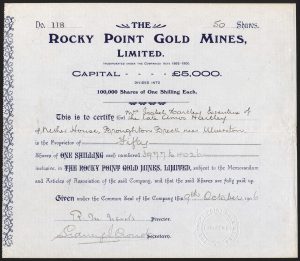 No. 118
50 Shares.
THE
ROCKY POINT GOLD MINES,
LIMITED.
INCORPORATED UNDER THE COMPANIES ACTS 1862-1900.
CAPITAL - - - - £5,000.
DIVIDED INTO
100,000 Shares of One Shilling Each.
This is to certify that Mrs Isabel Hartley Executrix of
the late Hartley
of House, Broughton Beck near Ulverston
is the Proprietor of Fifty
Shares of ONE SHILLING each numbered
inclusive, in THE ROCKY POINT GOLD MINES, LIMITED, subject to the Memorandum
and Articles of Association of the said Company, and that the said Shares are fully paid up.
Given under the Common Seal of the Company this 9th October 1906
Director.
Secretary.